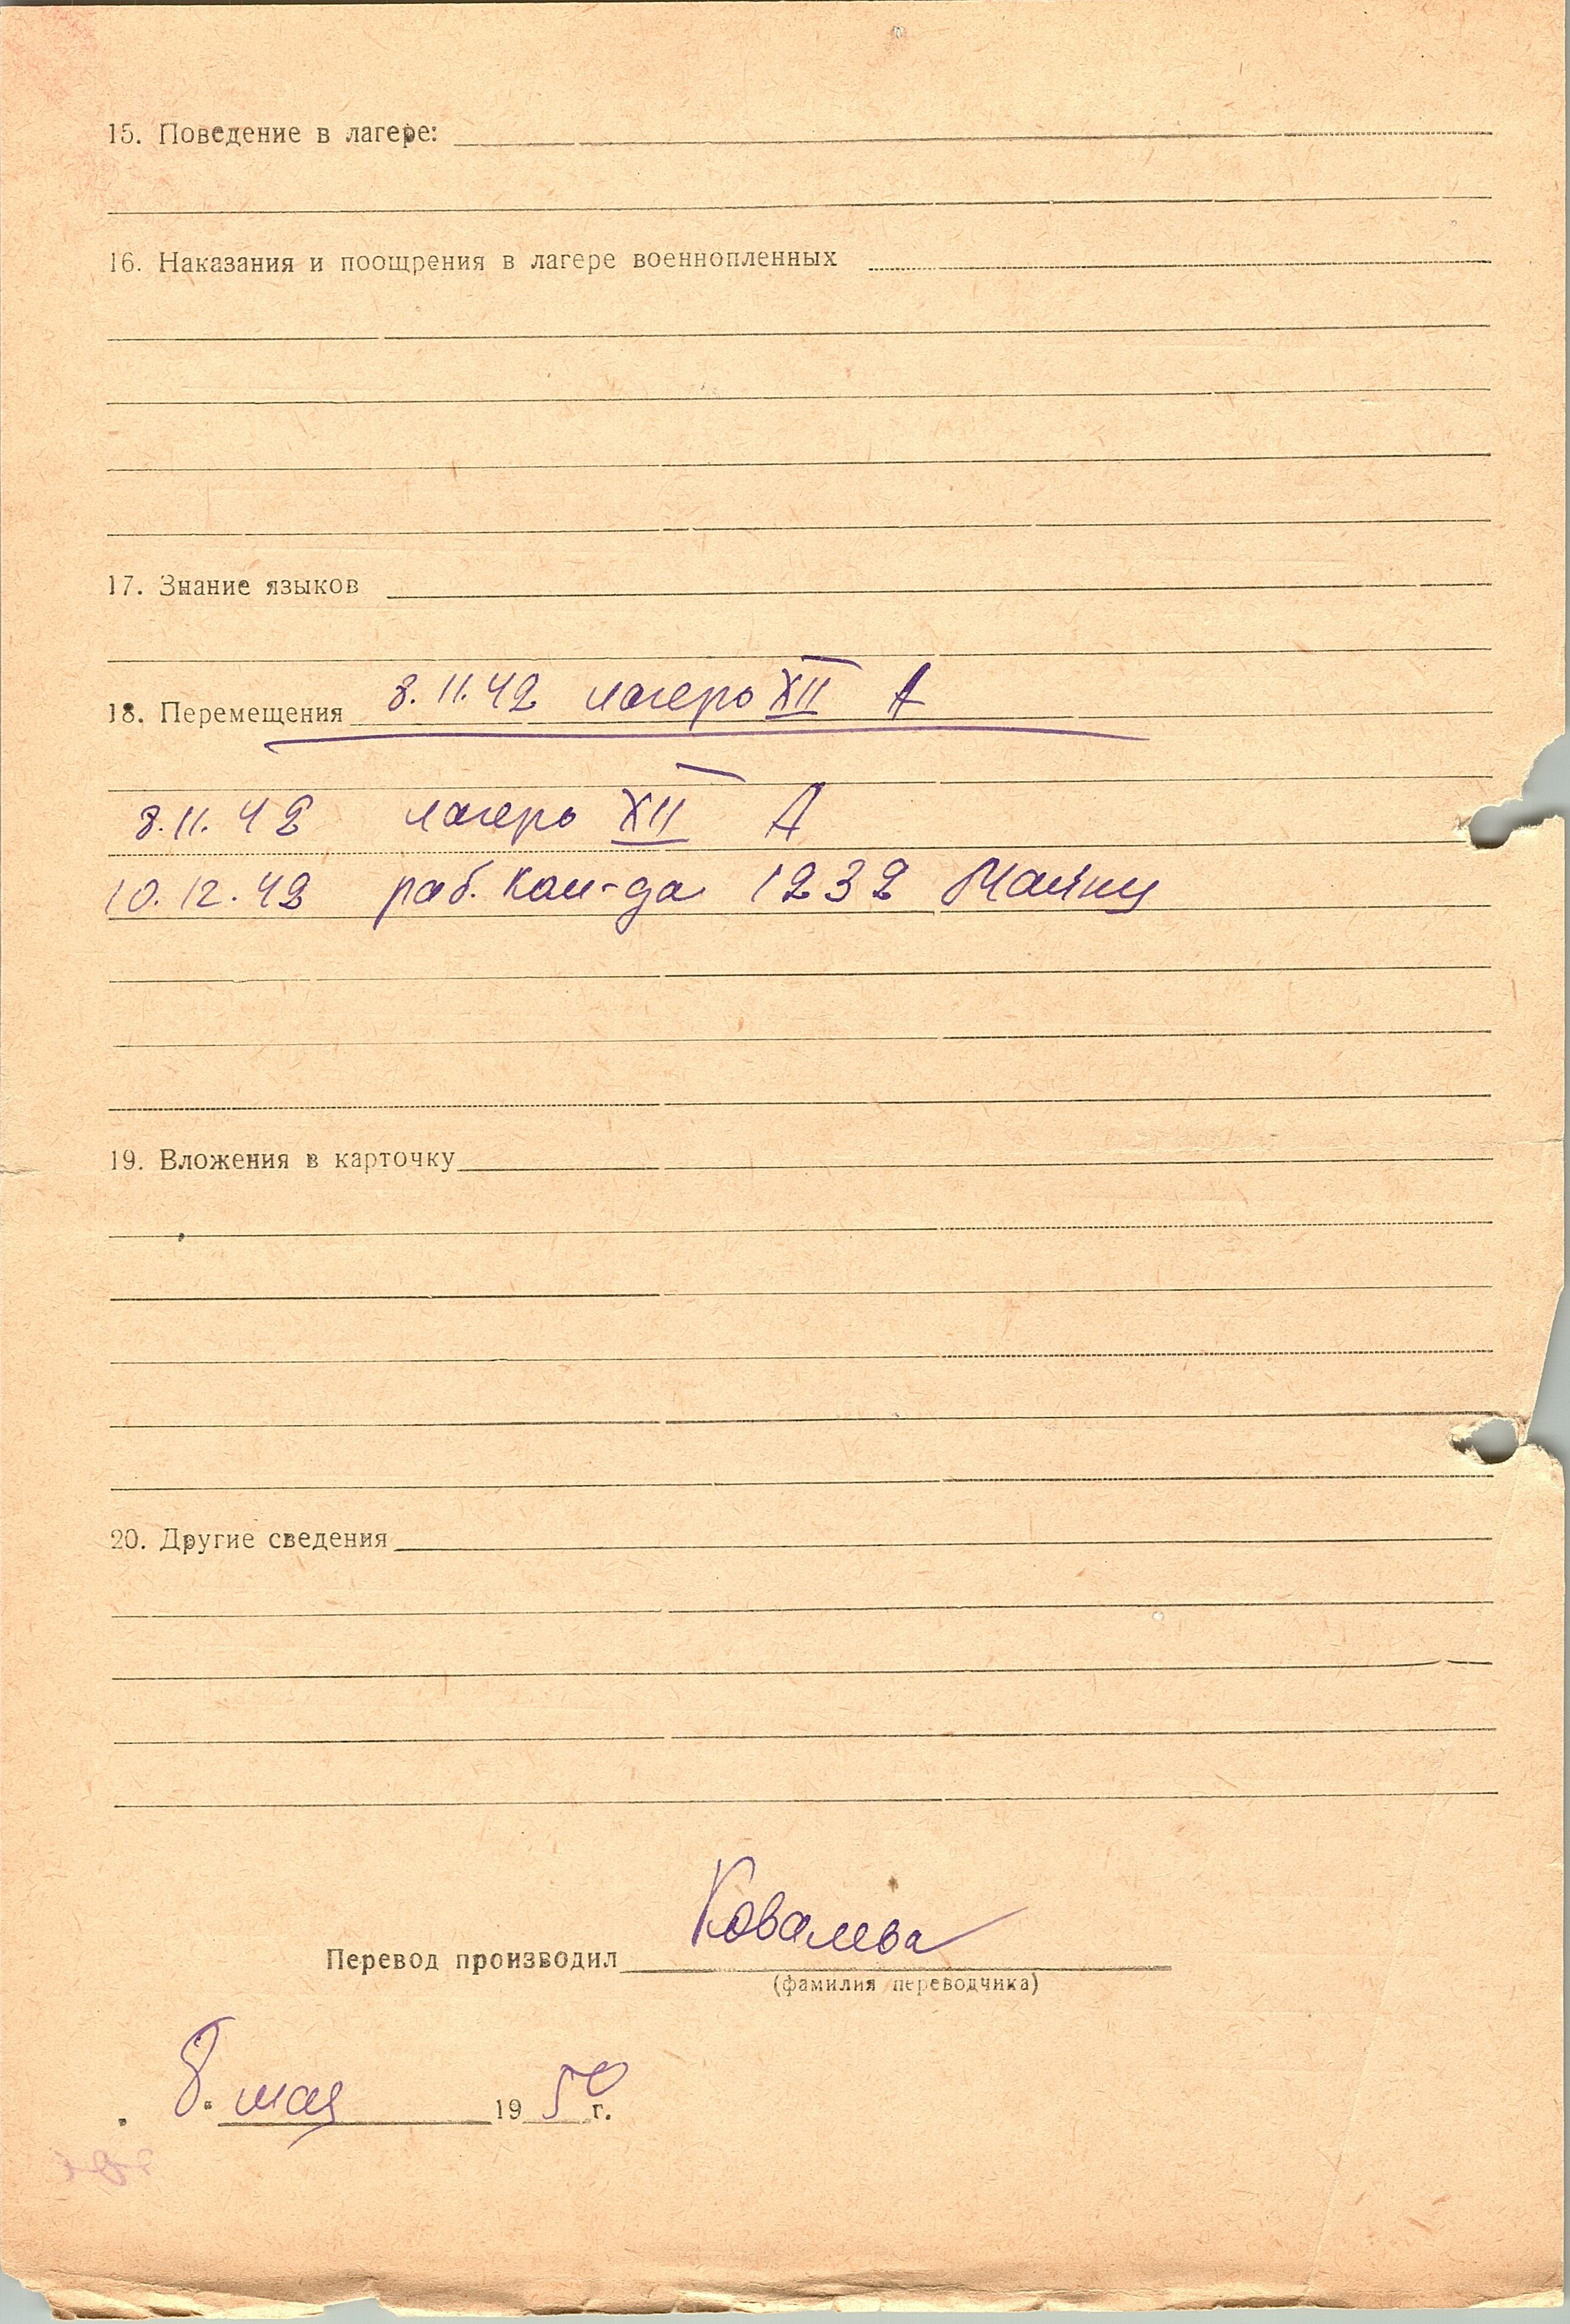 15. Поведение в лагере:
16. Наказания и поощрения в лагере военнопленных
17. Знание языков
18. Перемещения 8.11.42 лагерь XII А
8.11.42 лагерь XII А
10.12.42 раб. ком-да 1232 Майнц
19. Вложения в карточку
20. Другие сведения
Перевод производил Ковалева
(фамилия переводчика)
8. мая 1950 г.